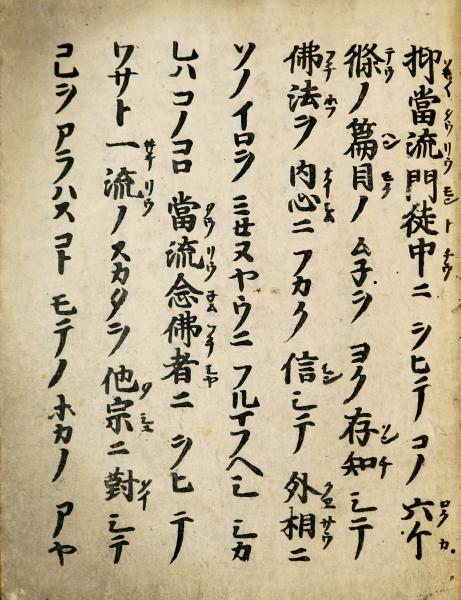 抑當流門徒中ニヲヒテコノ六ケ
條ノ篇目ノム子ヲヨク存知シテ
佛法ヲ内心ニフカク信シテ外相ニ
ソノイロヲミセヌヤウニフルマフヘシシカ
レハコノコロ當流念佛者ニヲヒテ
ワサト一流ノスカタヲ他宗ニ對シテ
コレヲアラハスコトモテノホカノアヤ